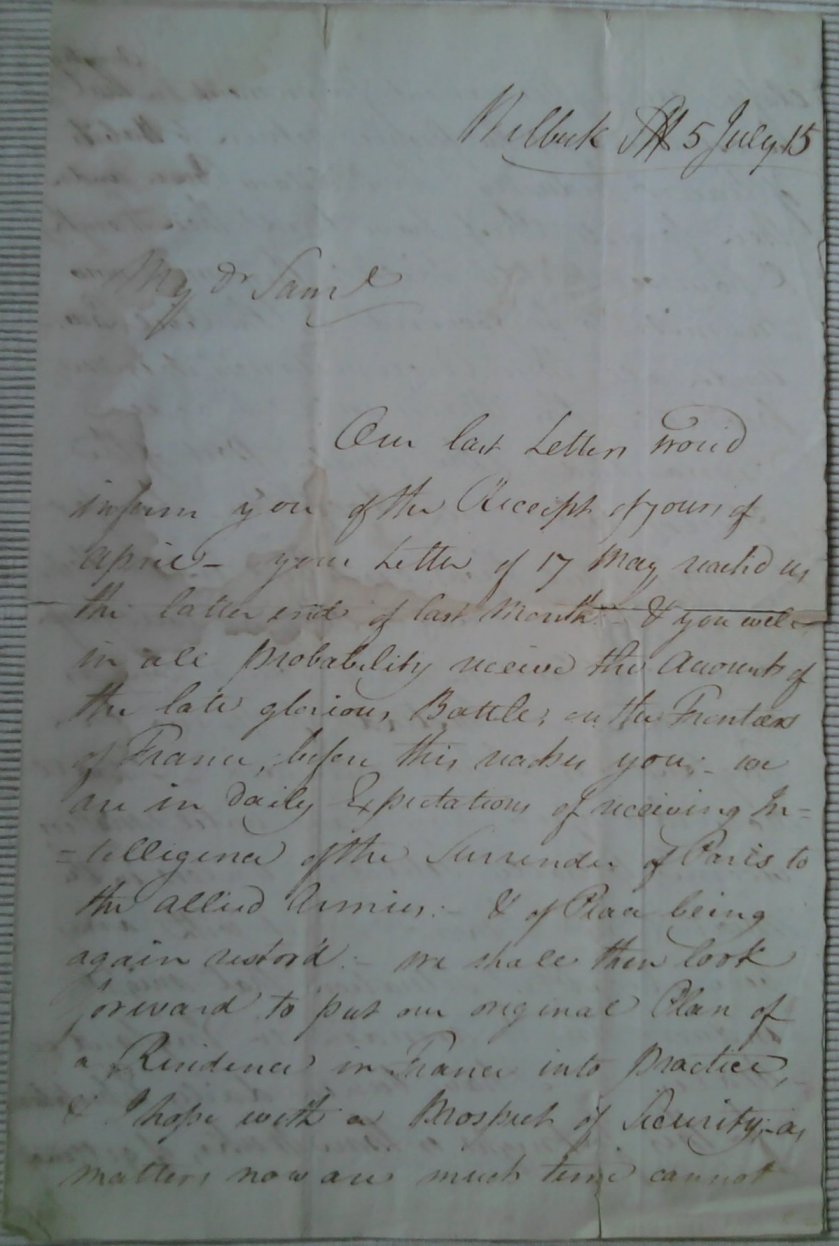 Welbeck St 5 July 15
My Dr Saml
Our last Letters wou'd
inform you of the Receipt of yours of
April - your Letter of 17 May reach'd us
the latter end of last Month - & you will
in all probability receive the Accounts of
the late glorious Battles on the Frontiers
of France, before this reaches you - we
are in daily Expectations of receiving In=
=telligence of the Surrender of Paris to
the allied Armies - & of Peace being
again restor'd - we shall then look
forward to put our original Plan of
a Residence in France into Practice,
& I hope with a Prospect of Security - as
matters now are much time cannot